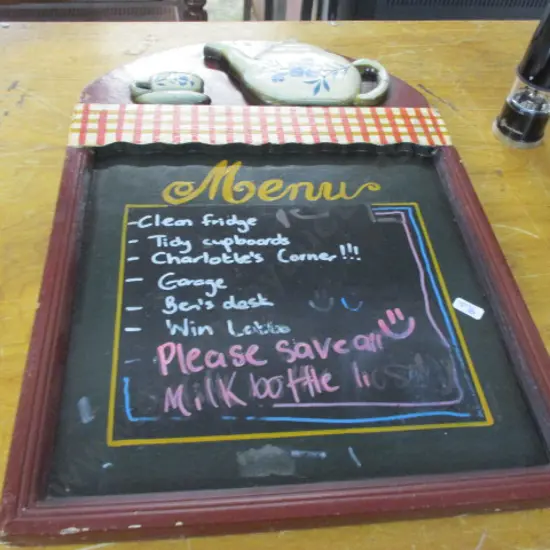 Menu
- Clean fridge
- Tidy cupboards
- Charlotte's Corner!!!
- Garage
- Ben's desk
- Win Lotto
Please save all
Milk bottle